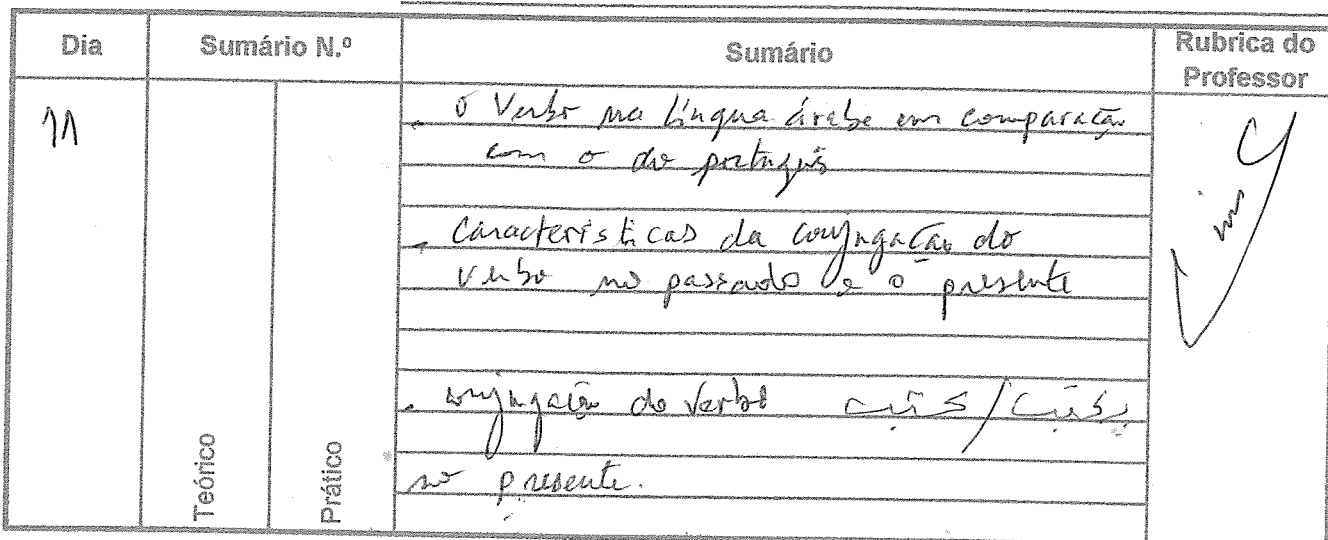 Dia
Sumário N.º
Sumário
Rubrica do
Professor
11
. O Verbo na língua árabe em comparação
com o do português
. Características da conjugação do
verbo no passado e o presente
. conjugação do verbo كتب / يكتب
no presente.
Teórico
Prático